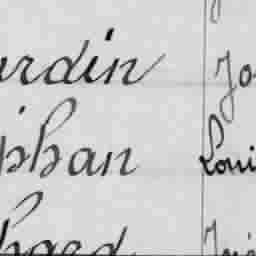 urdin Jo
phan Loui
hard